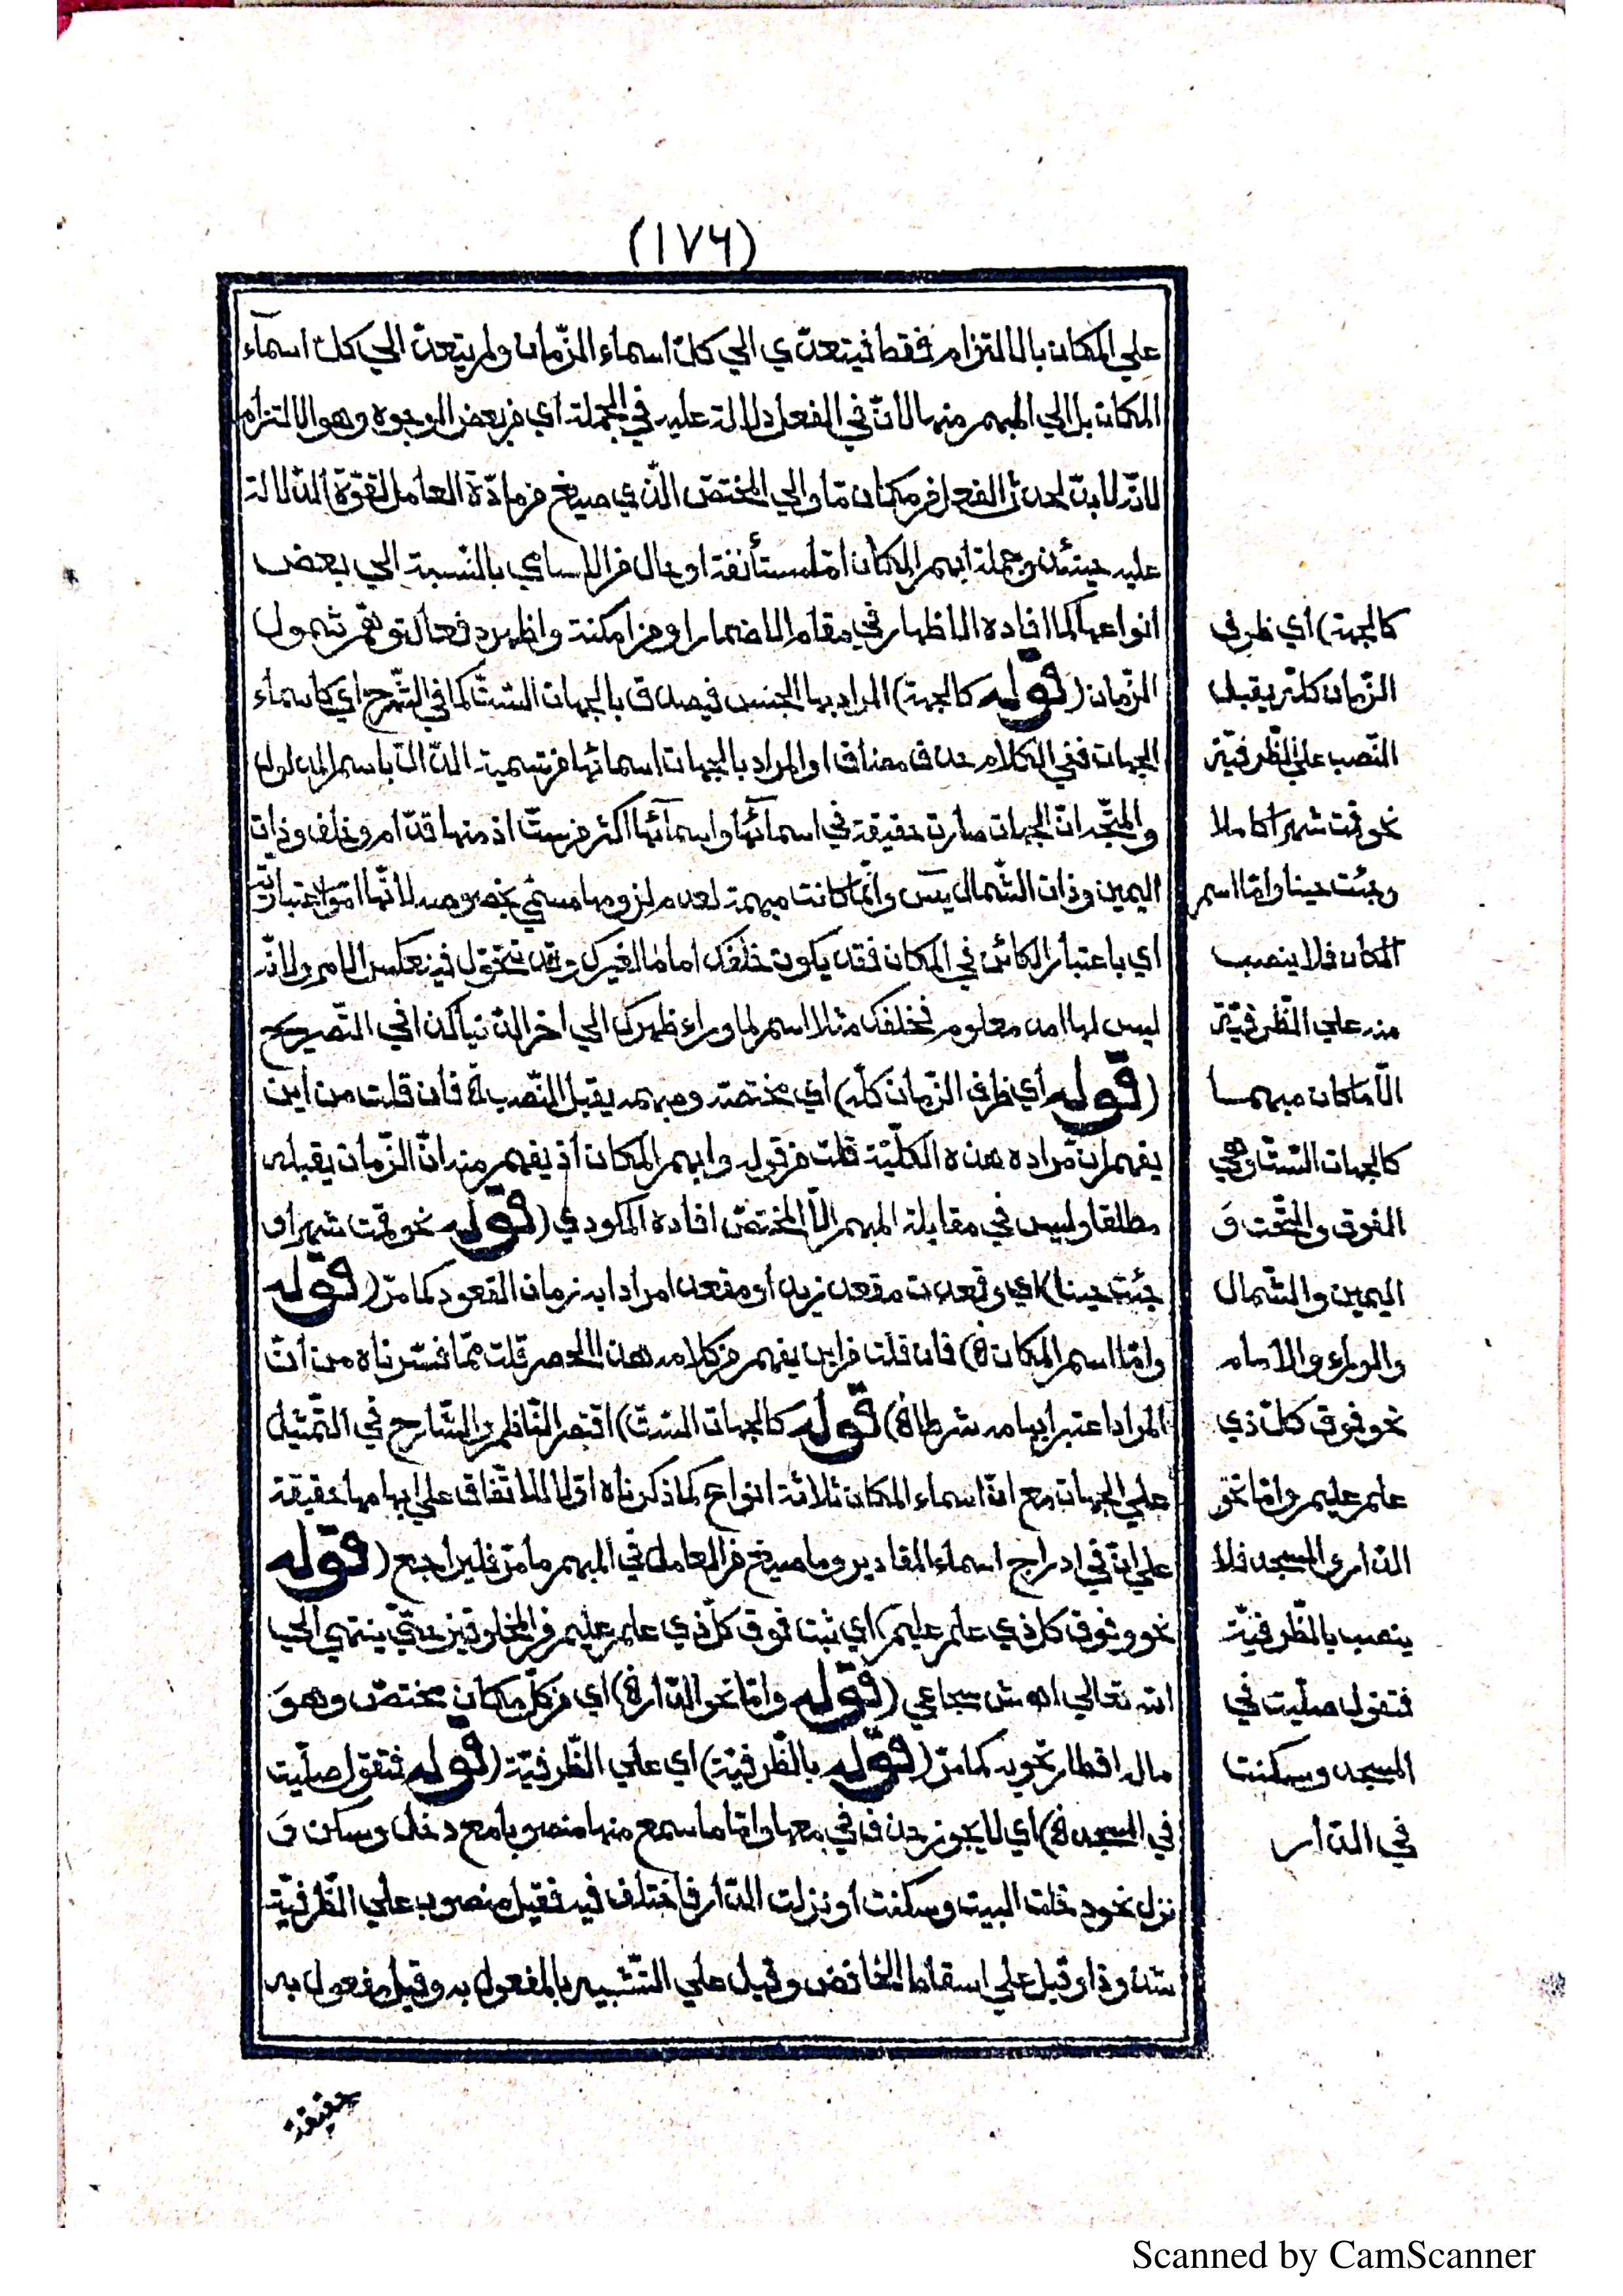 (١٧٦)
علي المكان بالالتزام فقط فيتعدّي الي كلّ اسماء الزّمان ولم يتعدّ الي كلّ اسمآء
المكان بل الي المبهم منها لانّ في الفعل دلالة عليه في الجملة اي في بعض الوجوه وهو الالتزام
لانّه لا بدّ لحدث الفعل من مكان مّا والي المختصّ الّذي صيغ من مادّة العامل لقوّة الدّلالة
عليه حينئذ وجملة ابهم المكان امّا مستأنفة او حال من الاسامي بالنّسبة الي بعض
انواعها كما افاده الاظهار في مقام الاضمار او من امكنة واظهر دفعا لتوهّم شمول
الزّمان (قوله كالجهة) المراد بها الجنس فيصدق بالجهات السّتّ كما في الشّرح اي كاسماء
الجهات ففي الكلام حذف مضاف او المراد بالجهات اسمائها من تسمية الدّالّ باسم المدلول
والمتّجه انّ الجهات صارت حقيقة في اسمآئها واسمآئها اكثر من ستّ اذ منها قدّام وخلف وذات
اليمين وذات الشّمال يسٓ وانّما كانت مبهمة لعدم لزومها مسمّي بخصوصه لانّها امور اعتباريّة
اي باعتبار الكائن في المكان فقد يكون خلفك اماما لغيرك وقد تتحوّل فينعكس الامر ولانّه
ليس لها امد معلوم فخلفك مثلا اسم لما وراء ظهرك الي اخر الدّنيا كذا في التّصريح
(قوله أي ظرف الزّمان كلّه) اي مختصّه ومبهمه يقبل النّصب فان قلت من أين
يفهم ان مراده هذه الكلّيّة قلت من قوله وابهم المكان اذ يفهم منه انّ الزّمان يقبله
مطلقا وليس في مقابلة المبهم الّا المختصّ افاده المكودي (قوله نحو قمت شهرا و
جئت حينا) اي وقعدت مقعد زيد أو مقعدا مرادا به زمان القعود كما مرّ (قوله
وامّا اسم المكان) فان قلت من اين يفهم من كلامه هذا الحصر قلت ممّا فسّرناه من أنّ
المراد اعتبر ابهامه شرطا (قوله كالجهات السّتّ) اقتصر النّاظم والشّارح في التّمثيل
علي الجهات مع انّ اسماء المكان ثلاثة انواع كما ذكرناه اوّلا للاتّفاق علي ابهامها حقيقة
علي انّ في ادراج اسماء المقادير وما صيغ من العامل في المبهم ما مرّ فليراجع (قوله
نحو وفوق كل ذي علم عليم) أي ثبت فوق كلّ ذي علم عليم من المخلوقين حتّي ينتهي الي
الله تعالي اه ش سجاعي (قوله وامّا نحو الدّار) اي من كلّ مكان مختصّ وهوَ
ما له اقطار تحويه كما مرّ (قوله بالظّرفيّة) أي علي الظّرفيّة (قوله فتقول صلّيت
في المسجد) اي لا يجوز حذف في معها وامّا ما سمع منها منصوبا مع دخل وسكن وَ
نزل نحو دخلت البيت وسكنت أو نزلت الدّار فاختلف فيه فقيل منصوب علي الظّرفيّة
شذوذا وقيل علي اسقاط الخافض وقيل علي التّشبيه بالمفعول به وقيل مفعول به
حقيقة
كالجهة) أي ظرف
الزّمان كلّه يقبل
النّصب علي الظّرفيّة
نحو قمت شهرا كاملا
وجئت حينا وامّا اسم
المكان فلا ينصب
منه علي الظّرفيّة
الّا ما كان مبهما
كالجهات السّتّ وهي
الفوق والتّحت وَ
اليمين والشّمال
والوراء والأمام
نحو فوق كلّ ذي
علم عليم وامّا نحو
الدّار والمسجد فلا
ينصب بالظّرفيّة
فتقول صلّيت في
المسجد وسكنت
في الدّار
Scanned by CamScanner